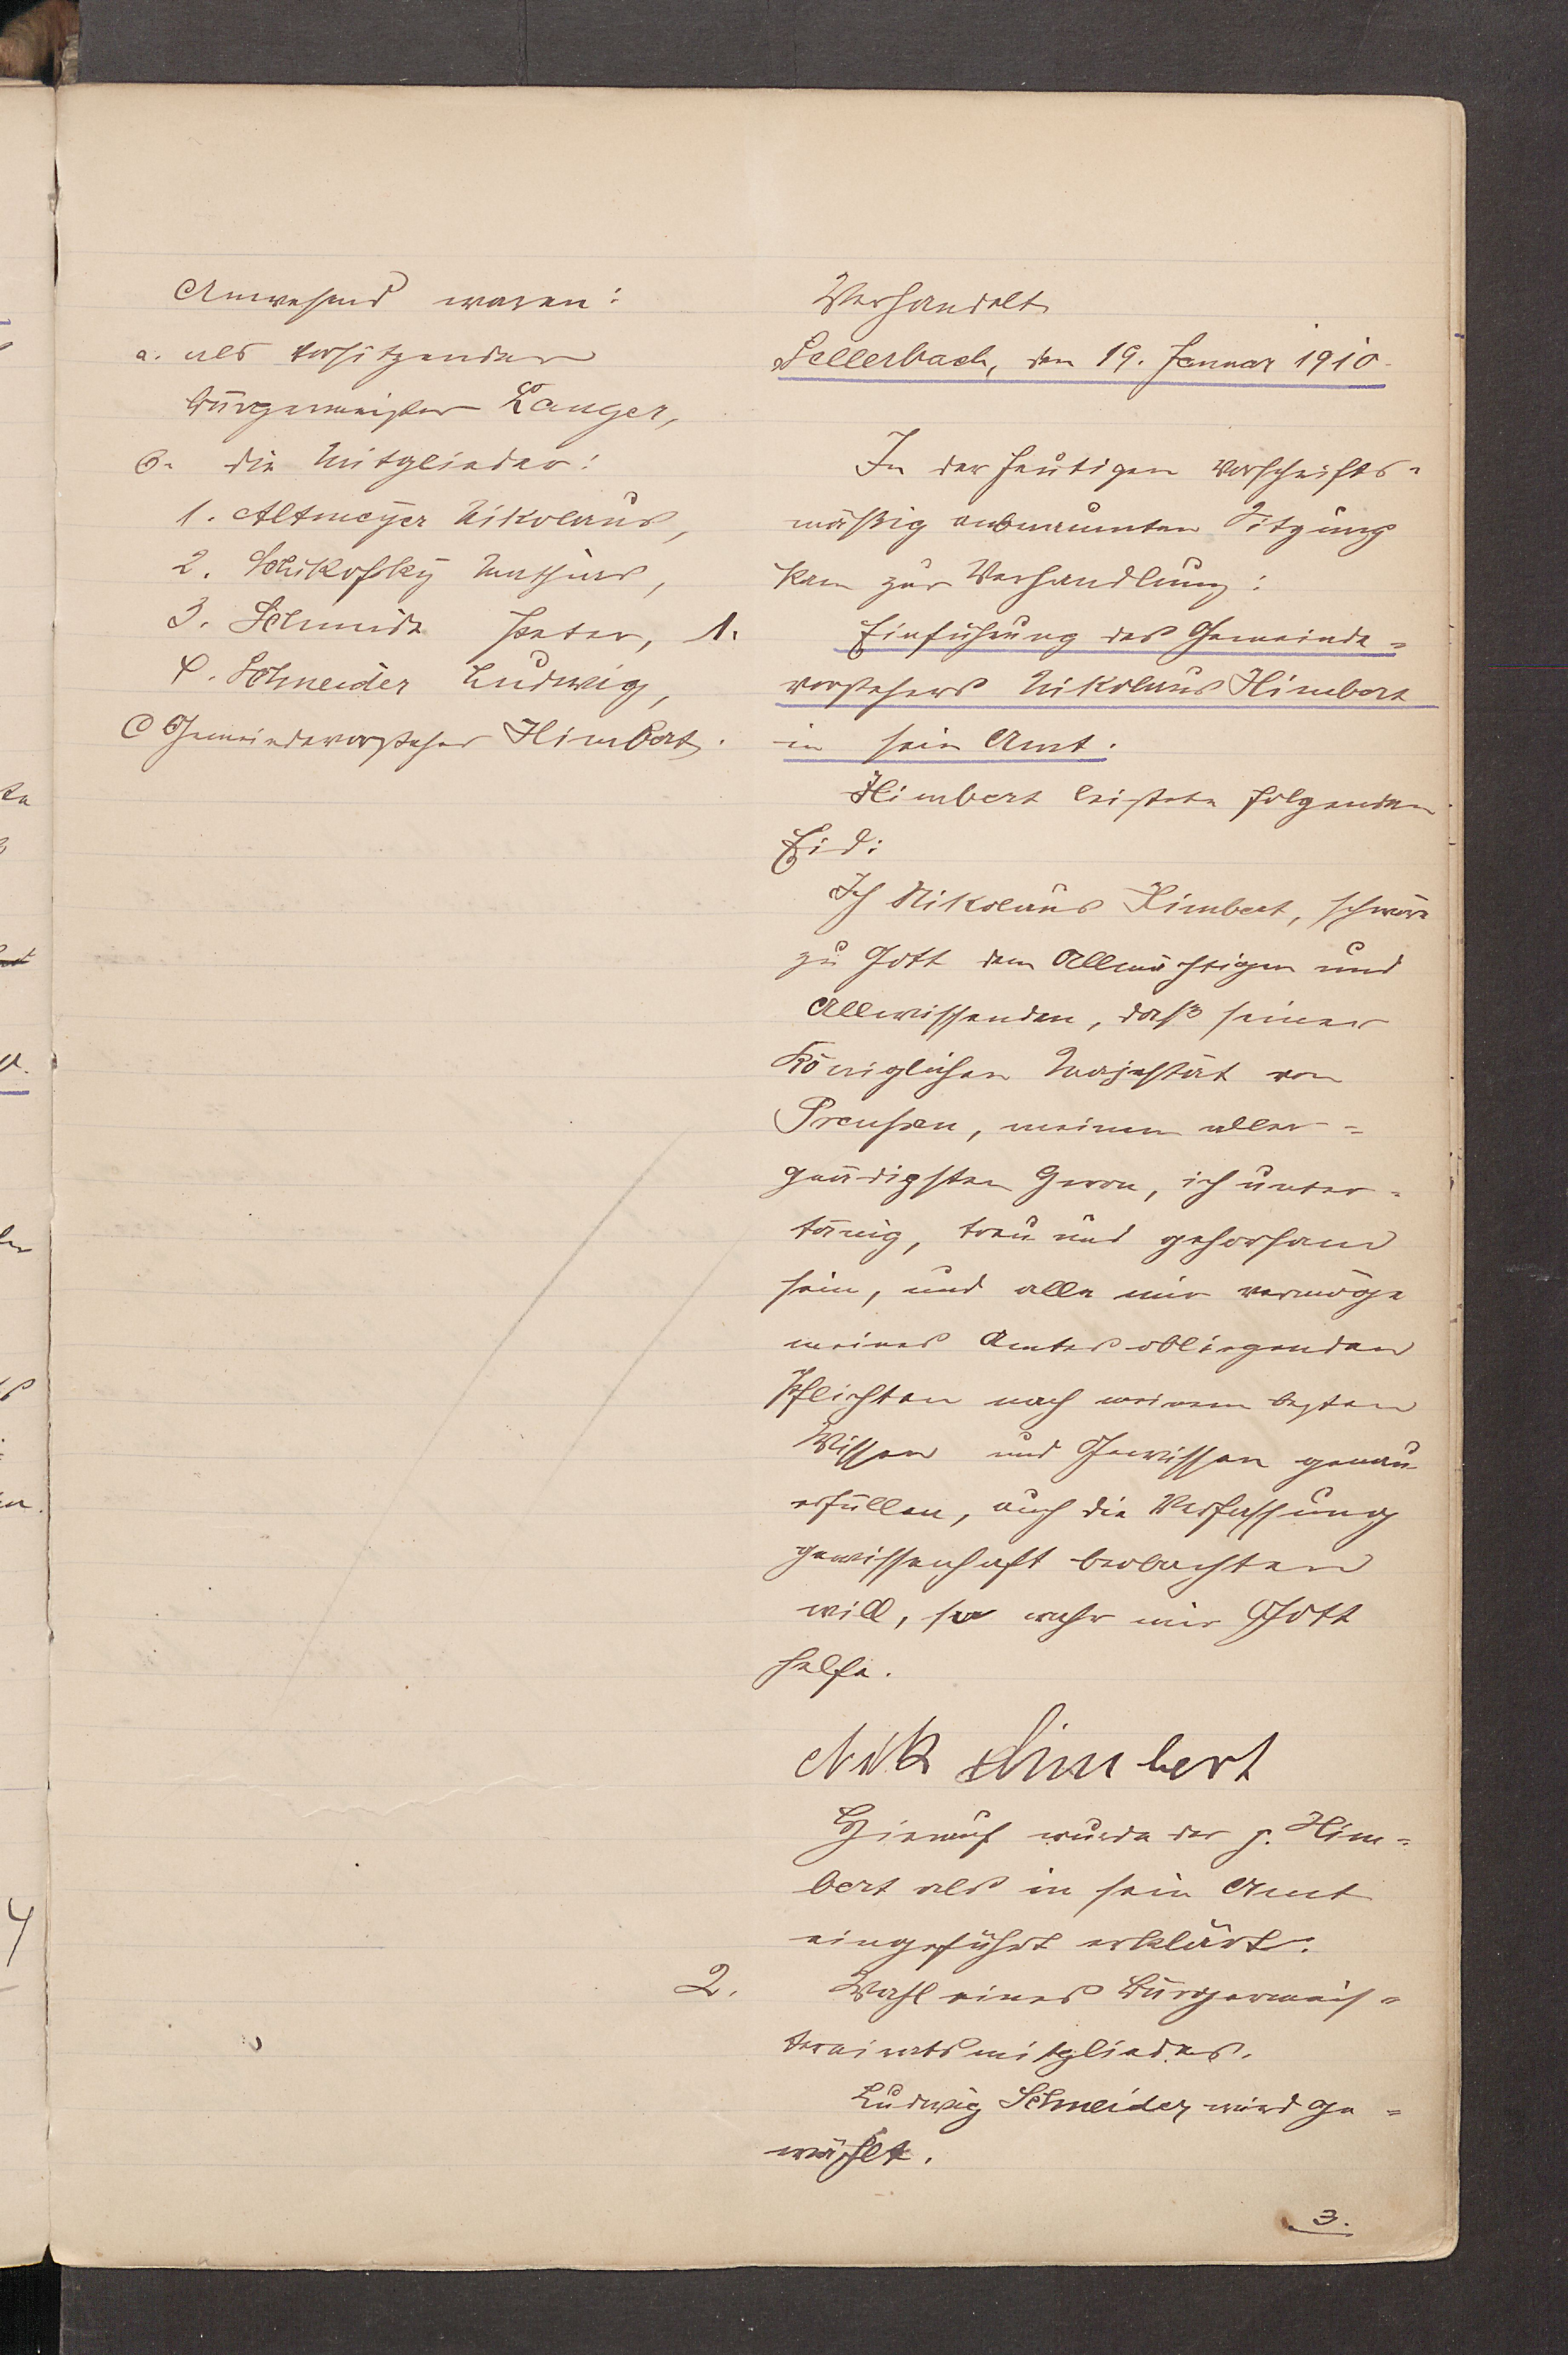 Anwesend waren:
a. als Vorsitzender
Bürgermeister Langer,
b. die Mitglieder:
1. Altmeyer Nikolaus,
2. Schikofsky Mathias,
3. Schmidt Peter,
4. Schneider Ludwig,
C Gemeindevorsteher Himbert.
Verhandelt
Sellerbach, den 19. Januar 1910.
In der heutigen vorschrifts-
mäßig anberaumten Sitzung
kam zur Verhandlung:
1. Einführung des Gemeinde-
vorstehers Nikolaus Himbert
in sein Amt.
Himbert leistete folgenden
Eid:
Ich Nikolaus Himbert, schwöre
zu Gott dem Allmächtigen und
Allwissenden, daß seiner
Königlichen Majestät von
Preußen, meinem aller-
gnädigsten Herrn, ich unter-
tänig, treu und gehorsam
sein, und alle mir vermöge
meines Amtes obliegenden
Pflichten nach meinem besten
Wissen und Gewissen genau
erfüllen, auch die Verfassung
gewissenhaft beobachten
will, so wahr mir Gott
helfe.
Nik Himbert
Hierauf wurde der p. Him-
bert als in sein Amt
eingeführt erklärt.
2. Wahl eines Bürgermeis-
tereiratsmitgliedes.
Ludwig Schneider wird ge-
wählt.
3.